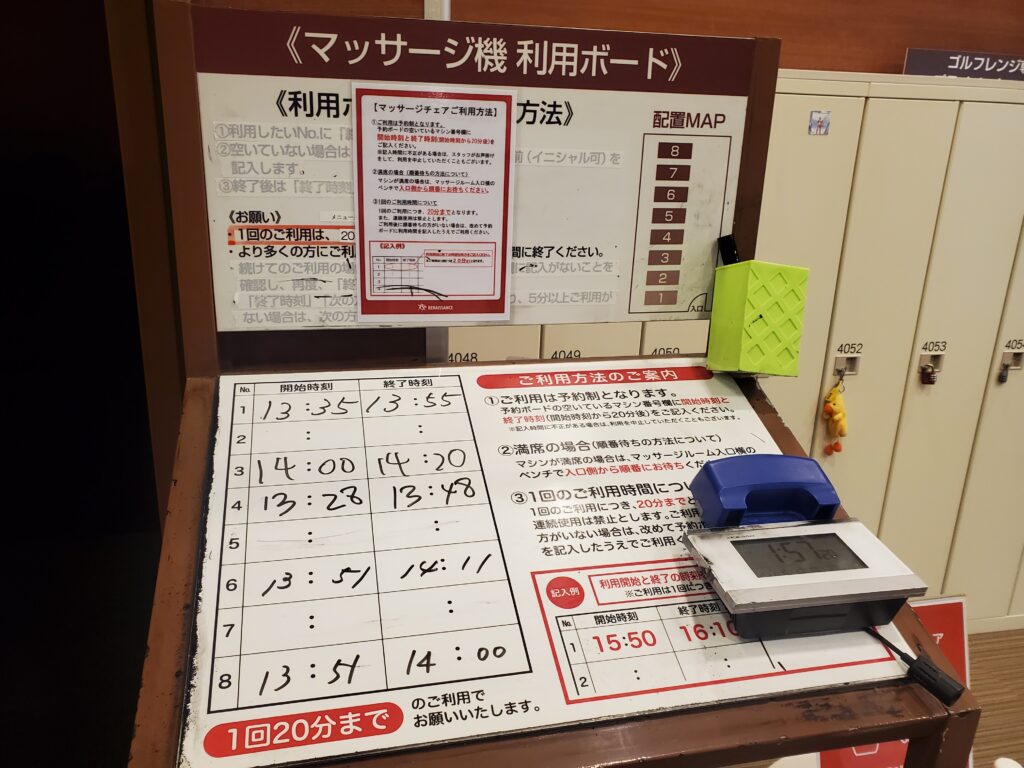 《マッサージ機 利用ボード》
《利用
方法》
①利用したいNo.に
②空いていない場合は
前（イニシャル可）を
記入します。
③終了後は「終了時刻
《お願い》
メニュー
1回のご利用は、20
・より多くの方にご利
間に終了ください。
・続けてのご利用の場
記入がないことを
確認し、再度、「終
「終了時刻」「次の
り、5分以上ご利用が
ない場合は、次の方
【マッサージチェアご利用方法】
①ご利用は予約制となります。
予約ボードの空いているマシン番号欄に
開始時刻と終了時刻(開始時刻から20分後)を
ご記入ください。
※記入時間に不正がある場合は、スタッフがお声掛け
をして、利用を中止していただくこともございます。
②満席の場合（順番待ちの方法について）
マシンが満席の場合は、マッサージルーム入口横の
ベンチで入口側から順番にお待ちください。
③1回のご利用時間について
1回のご利用につき、20分までとなります。
また、連続使用は禁止とします。
ご利用後に順番待ちの方がいない場合は、改めて予約
ボードに利用時間を記入したうえでご利用ください。
《記入例》
No. 開始時刻 終了時刻
RENAISSANCE
配置MAP
8
7
6
5
4
3
2
1
入口
ゴルフレンジ
4048
4049
4050
4052
4053
4054
No. 開始時刻 終了時刻
1 13:35 13:55
2 : :
3 14:00 14:20
4 13:28 13:48
5 : :
6 13:51 14:11
7 : :
8 13:51 14:00
1回20分まで
のご利用で
お願いいたします。
ご利用方法のご案内
①ご利用は予約制となります。
予約ボードの空いているマシン番号欄に開始時刻と
終了時刻(開始時刻から20分後)をご記入ください。
※記入時間に不正がある場合は、利用を中止していただくこともございます。
②満席の場合（順番待ちの方法について）
マシンが満席の場合は、マッサージルーム入口横の
ベンチで入口側から順番にお待ちく
③1回のご利用時間につ
1回のご利用につき、20分までと
連続使用は禁止とします。ご利
方がいない場合は、改めて予約
を記入したうえでご利用く
1:57
記入例
利用開始と終了の時刻
※ご利用は1回につき
No. 開始時刻 終了時刻
1 15:50 16:10
2 : :